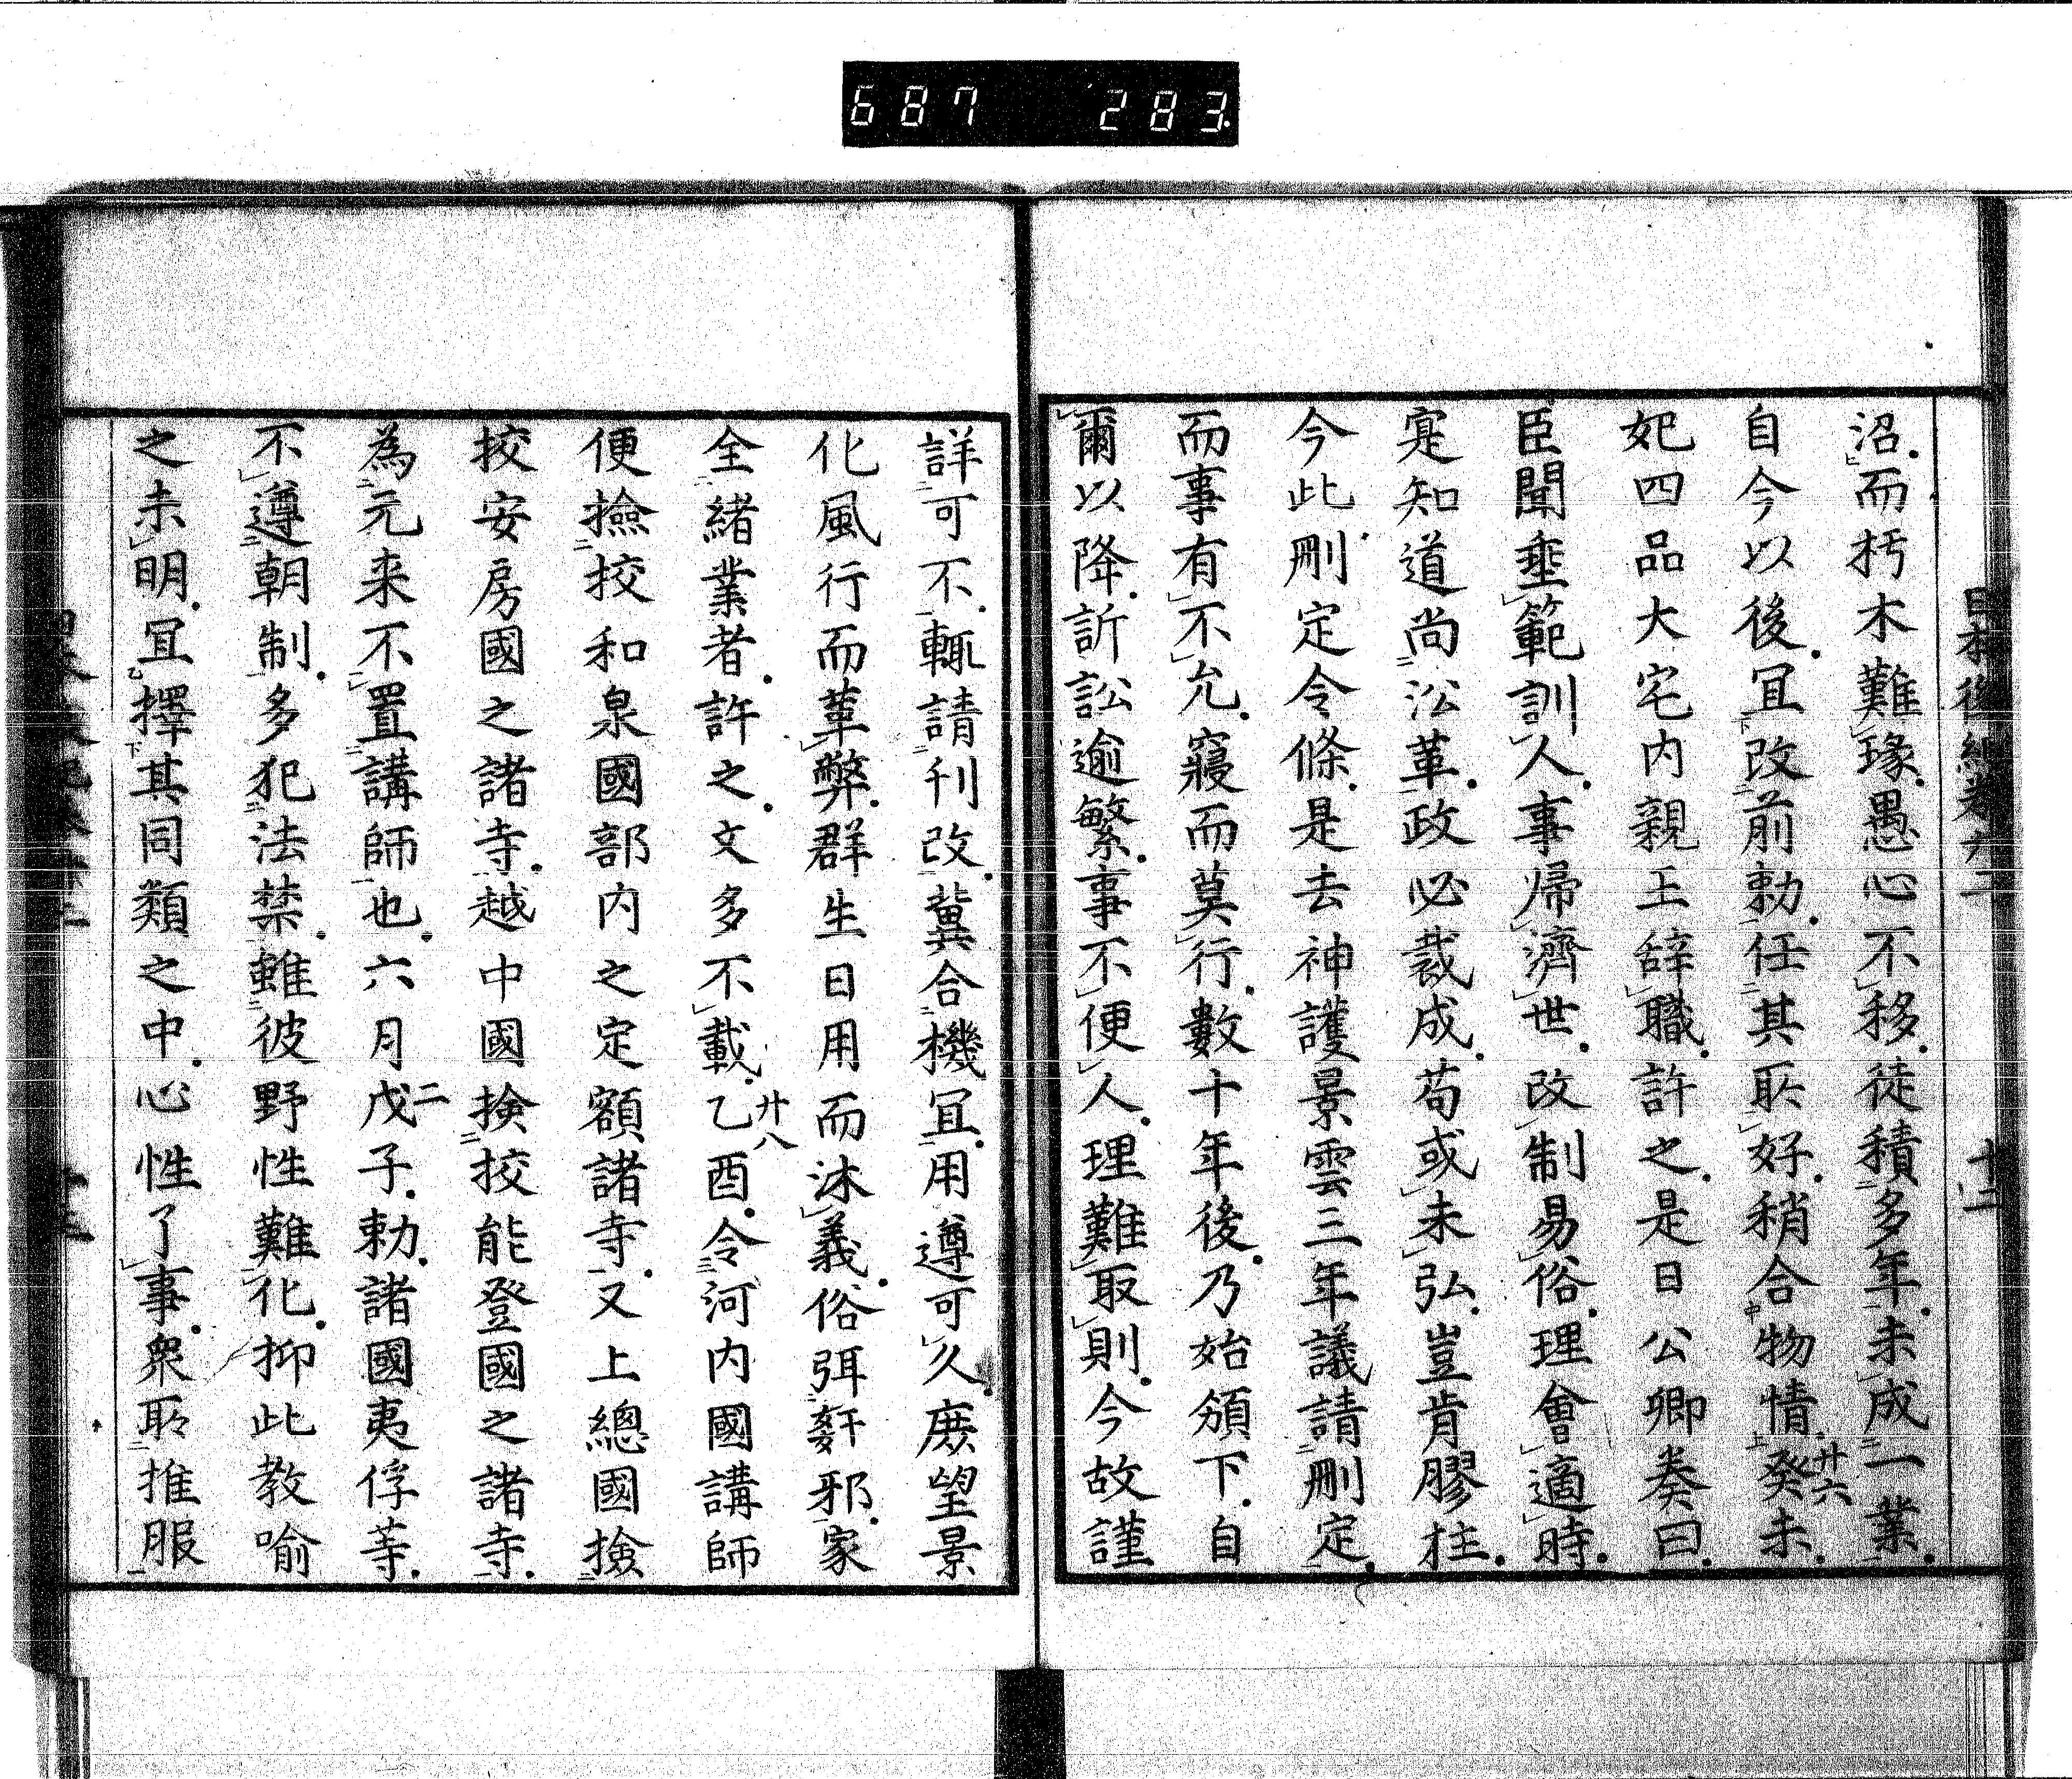 687 283
沼而朽木難瑑愚心不移徒積多年未成一業
自今以後冝改前勅任其耴好稍合物情癸未
廿六
妃四品大宅内親王辞職許之是日公卿奏曰
臣聞垂範訓人事帰濟世改制易俗理會適時
寔知道尚沿革政必裁成苟或未弘豈肯膠柱
今此刪定令條是去神護景雲三年議請刪定
而事有不允寢而莫行數十年後乃始頒下自
爾以降訴訟逾繁事不便人理難取則今故謹
詳可不輙請刊改冀合機冝用遵可久庶望景
化風行而革弊群生日用而沐義俗弭姧邪家
全緒業者許之文多不載乙酉令河内國講師
廿八
便撿挍和泉國部内之定額諸寺又上總國撿
挍安房國之諸寺越中國検挍能登國之諸寺
為元来不置講師也六月戊子勅諸國夷俘等
二
不遵朝制多犯法禁雖彼野性難化抑此教喻
之未明冝擇其同類之中心性了事衆耴推服